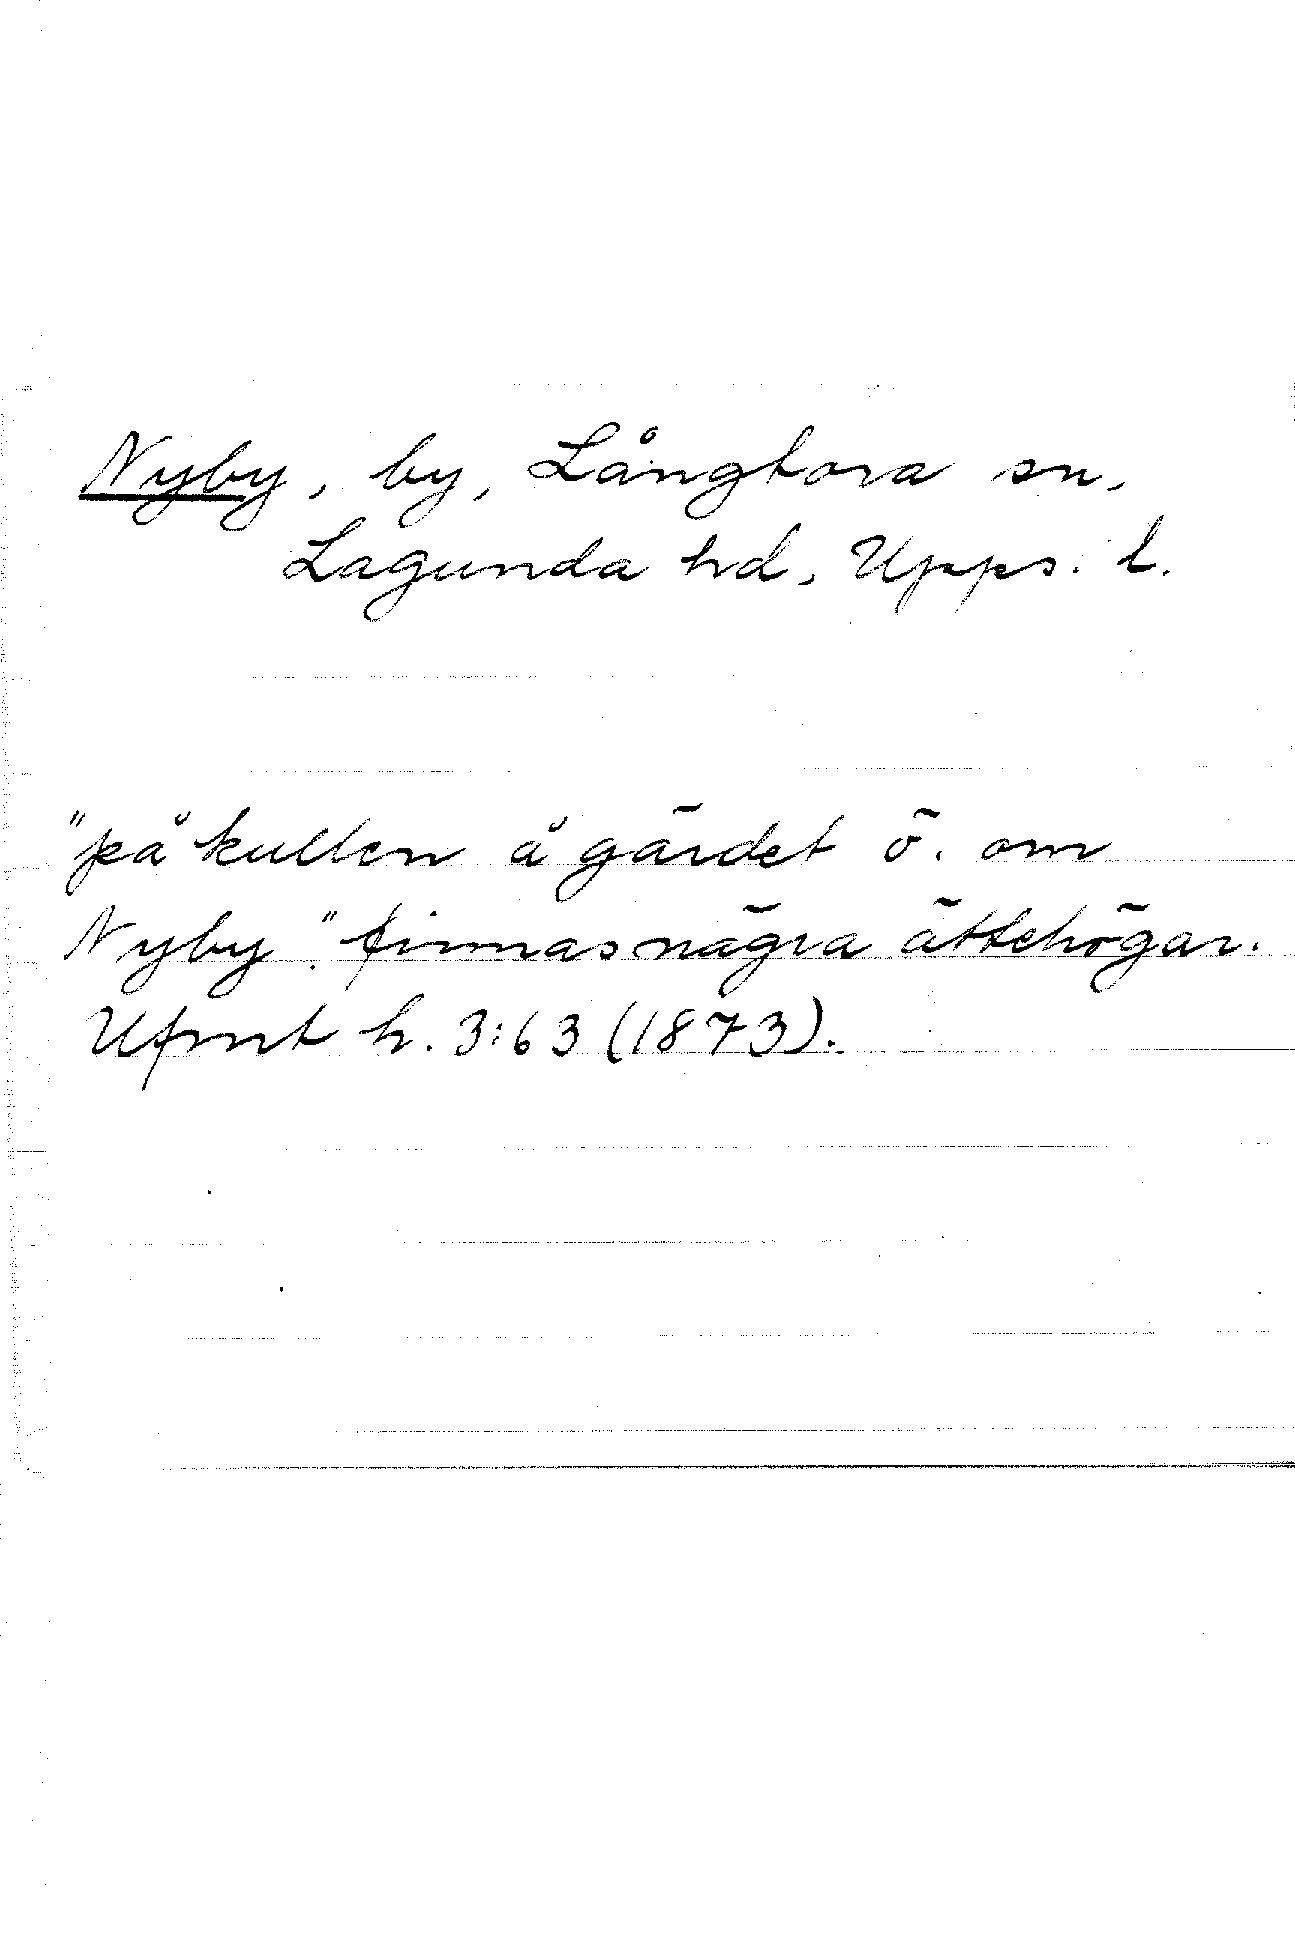 Nyby, by, Långtora sn,
Lagunda hd, Upps. l.
"på kullen å gärdet ö. om
Nyby." finnas några ättehögar.
Ufmt h. 3:63 (1873).